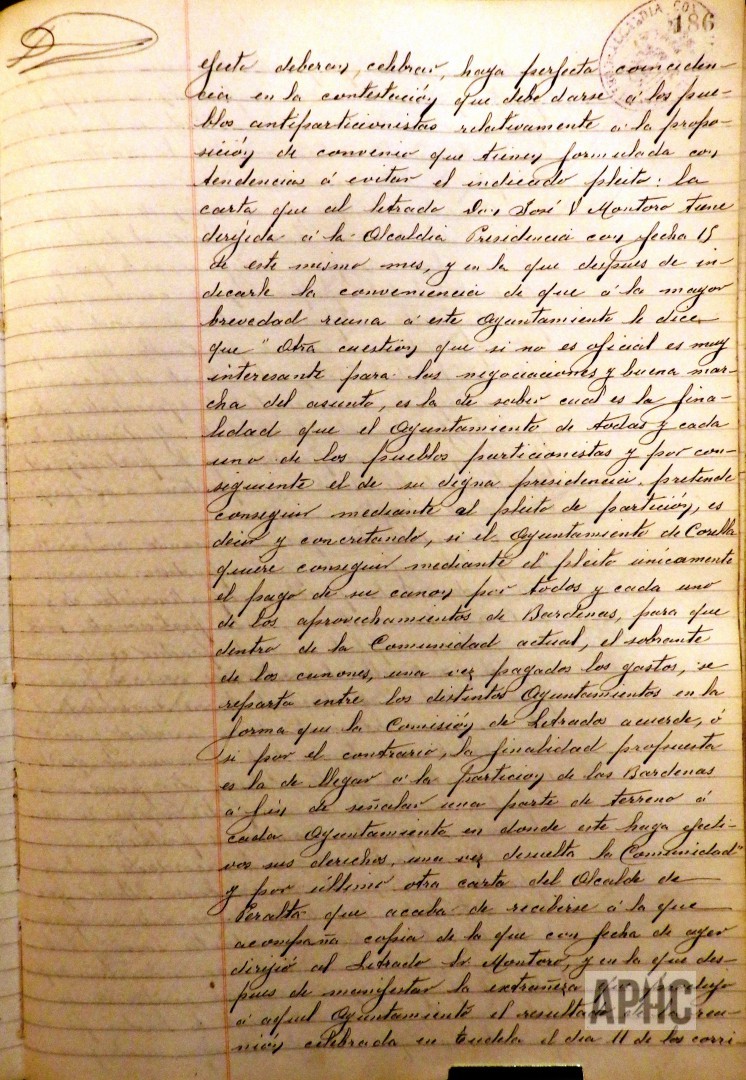 186
efecto deberan, celebrar, haya perfecta coinciden-
cia en la contestación que debe darse á los pue-
blos antiparticionistas relativamente á la propo-
sición de convenio que tienen formulada con
tendencias á evitar el indicado pleito: la
carta que el letrado Don José V Montoro tiene
dirijida á la Alcaldia Presidencia con fecha 15
de este mismo mes, y en la que despues de in-
dicarle la conveniencia de que á la mayor
brevedad reuna á este Ayuntamiento le dice
que "Otra cuestión que si no es oficial es muy
interesante para las negociaciones y buena mar-
cha del asunto, es la de saber cual es la fina-
lidad que el Ayuntamiento de todas y cada
uno de los pueblos particionistas y por con-
seguiente el de su digna presidencia, pretende
conseguir mediante el pleito de partición, es
decir y concretando, si el Ayuntamiento de Corella
quiere conseguir mediante el pleito únicamente
el pago de su canon por todos y cada uno
de los aprovechamientos de Bardenas, para que
dentro de la Comunidad actual, el sobrante
de los canones, una vez pagados los gastos, se
reparta entre los distintos Ayuntamientos en la
forma que la Comisión de Letrados acuerde, ó
si por el contrario, la finalidad propuesta
es la de llegar á la Particion de las Bardenas
á fin de señalar una parte de terreno á
cada Ayuntamiento en donde este haga efecti-
vos sus derechos, una vez disuelta la Comunidad"
y por último otra carta del Alcalde de
Peralta que acaba de recibirse á la que
acompaña copia de la que con fecha de ayer
dirijió al Letrado Sr. Montoro, y en la que des-
pues de manifestar la extrañeza que produjo
á aquel Ayuntamiento el resultado de la reu-
nión celebrada en Tudela el dia 11 de los corri
APHC